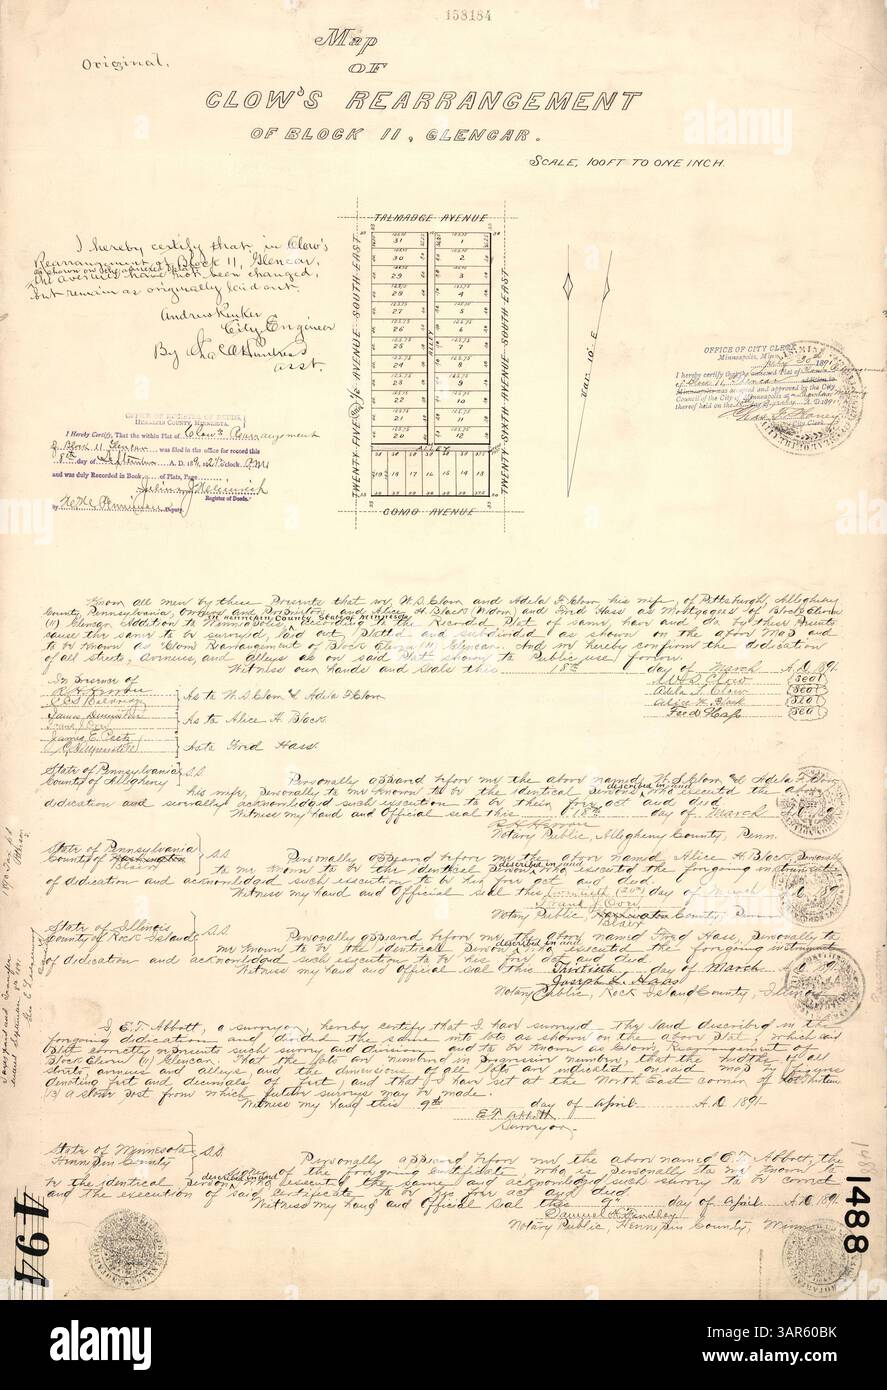 158184
Original.
Map
OF
CLOW'S REARRANGEMENT
OF BLOCK 11, GLENCAR.
SCALE, 100FT TO ONE INCH.
TALMADGE AVENUE
TWENTY FIVE & 1/2 AVENUE SOUTH EAST
TWENTY-SIXTH AVENUE SOUTH EAST
ALLEY
31 1
30 2
29 3
28 4
27 5
26 6
25 7
24 8
23 9
22 10
21 11
20 12
ALLEY
19 18 17 16 15 14 13
COMO AVENUE
Var. 10° E.
I hereby certify that in Clow's
Rearrangement of Block 11, Glencar,
as shown on
the avenues have not been changed,
but remain as originally laid out.
Andrew Rinker
City Engineer
By
Asst.
OFFICE OF REGISTER OF DEEDS,
HENNEPIN COUNTY, MINNESOTA.
I Hereby Certify, That the within Plat of Clow's Rearrangement
of Block 11 Glencar was filed in the office for record this
18th day of September A. D. 189 o'clock P.M.
and was duly Recorded in Book of Plats, Page
Register of Deeds.
by Deputy.
OFFICE OF CITY CLERK
Minneapolis, Minn. 30th 1891
I hereby certify that the annexed Plat of
of Block 11 Glencar addition to
Minneapolis was accepted and approved by the City
Council of the City of Minneapolis at a
thereof held on the A. D. 1891
City Clerk
Know all men by these Presents that we, W. S. Clow and Adela F. Clow, his wife, of Pittsburgh, Allegheny
County, Pennsylvania, Owners and Proprietors, and Alice H. Black (Widow) and Fred Hass as Mortgagees of Block Eleven
(11) Glencar Addition to Minneapolis, in Hennepin County, State of Minnesota, according to the Recorded Plat of same, have and do by these Presents
cause the same to be surveyed, laid out, Platted and subdivided as shown on the above Map and
to be known as Clow's Rearrangement of Block Eleven (11) Glencar. And we hereby confirm the dedication
of all streets, avenues, and alleys as on said Plat shown to Public use forever.
Witness our hands and seals this 18th day of March A.D. 1891
In Presence of
As to W. S. Clow & Adela F. Clow
As to Alice H. Black.
James E. Peetz
As to Fred Hass.
W. S. Clow Seal
Adela F. Clow Seal
Alice H. Black Seal
Fred Hass Seal
State of Pennsylvania
County of Allegheny S.S.
Personally appeared before me the above named W. S. Clow & Adela F. Clow
his wife, personally to me known to be the identical persons described in and who executed the above
dedication and severally acknowledged such execution to be their free act and deed.
Witness my hand and Official seal this 18th day of March
Notary Public, Allegheny County, Penn.
State of Pennsylvania
County of Blair S.S.
Personally appeared before me the above named Alice H. Black, personally
to me known to be the identical person described in and who executed the foregoing instrument
of dedication and acknowledged such execution to be her free act and deed.
Witness my hand and Official seal this Twentieth (20th) day of March
Notary Public, Blair County, Penna
State of Illinois
County of Rock Island S.S.
Personally appeared before me the above named Fred Hass, personally to
me known to be the identical person described in and who executed the foregoing instrument
of dedication and acknowledged such execution to be his free act and deed.
Witness my hand and official seal this Thirtieth day of March A.D. 1891
Joseph L. Haas
Notary Public, Rock Island County, Illinois
I, E.T. Abbott, a surveyor, hereby certify that I have surveyed the land described in the
foregoing dedication and divided the same into lots as shown on the above Plat, which said
Plat correctly represents such survey and division and to be known as Clow's Rearrangement of
Block Eleven (11) Glencar. That the lots are numbered in progressive numbers, that the widths of all
streets, avenues and alleys, and the dimensions of all lots are indicated on said map by figures
denoting feet and decimals of feet; and that I have set at the North East corner of Lot Thirteen
(13) a stone post from which future surveys may be made.
Witness my hand this 9th day of April A.D. 1891-
E.T. Abbott
Surveyor.
State of Minnesota
Hennepin County S.S.
Personally appeared before me the above named E. T. Abbott, the
signer of the foregoing certificate, who is personally to me known to
be the identical person described in and who executed the same and acknowledged such survey to be correct
and the execution of said certificate to be his free act and deed.
Witness my hand and Official seal this 9" day of April A.D. 1891-
Notary Public, Hennepin County, Minnesota
494
1488
1488
alamy
Image ID: 3AR60BK
www.alamy.com